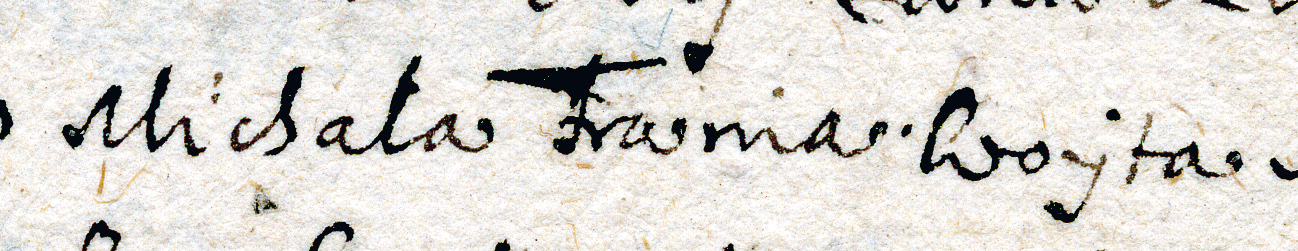 Michala Frania Woyta